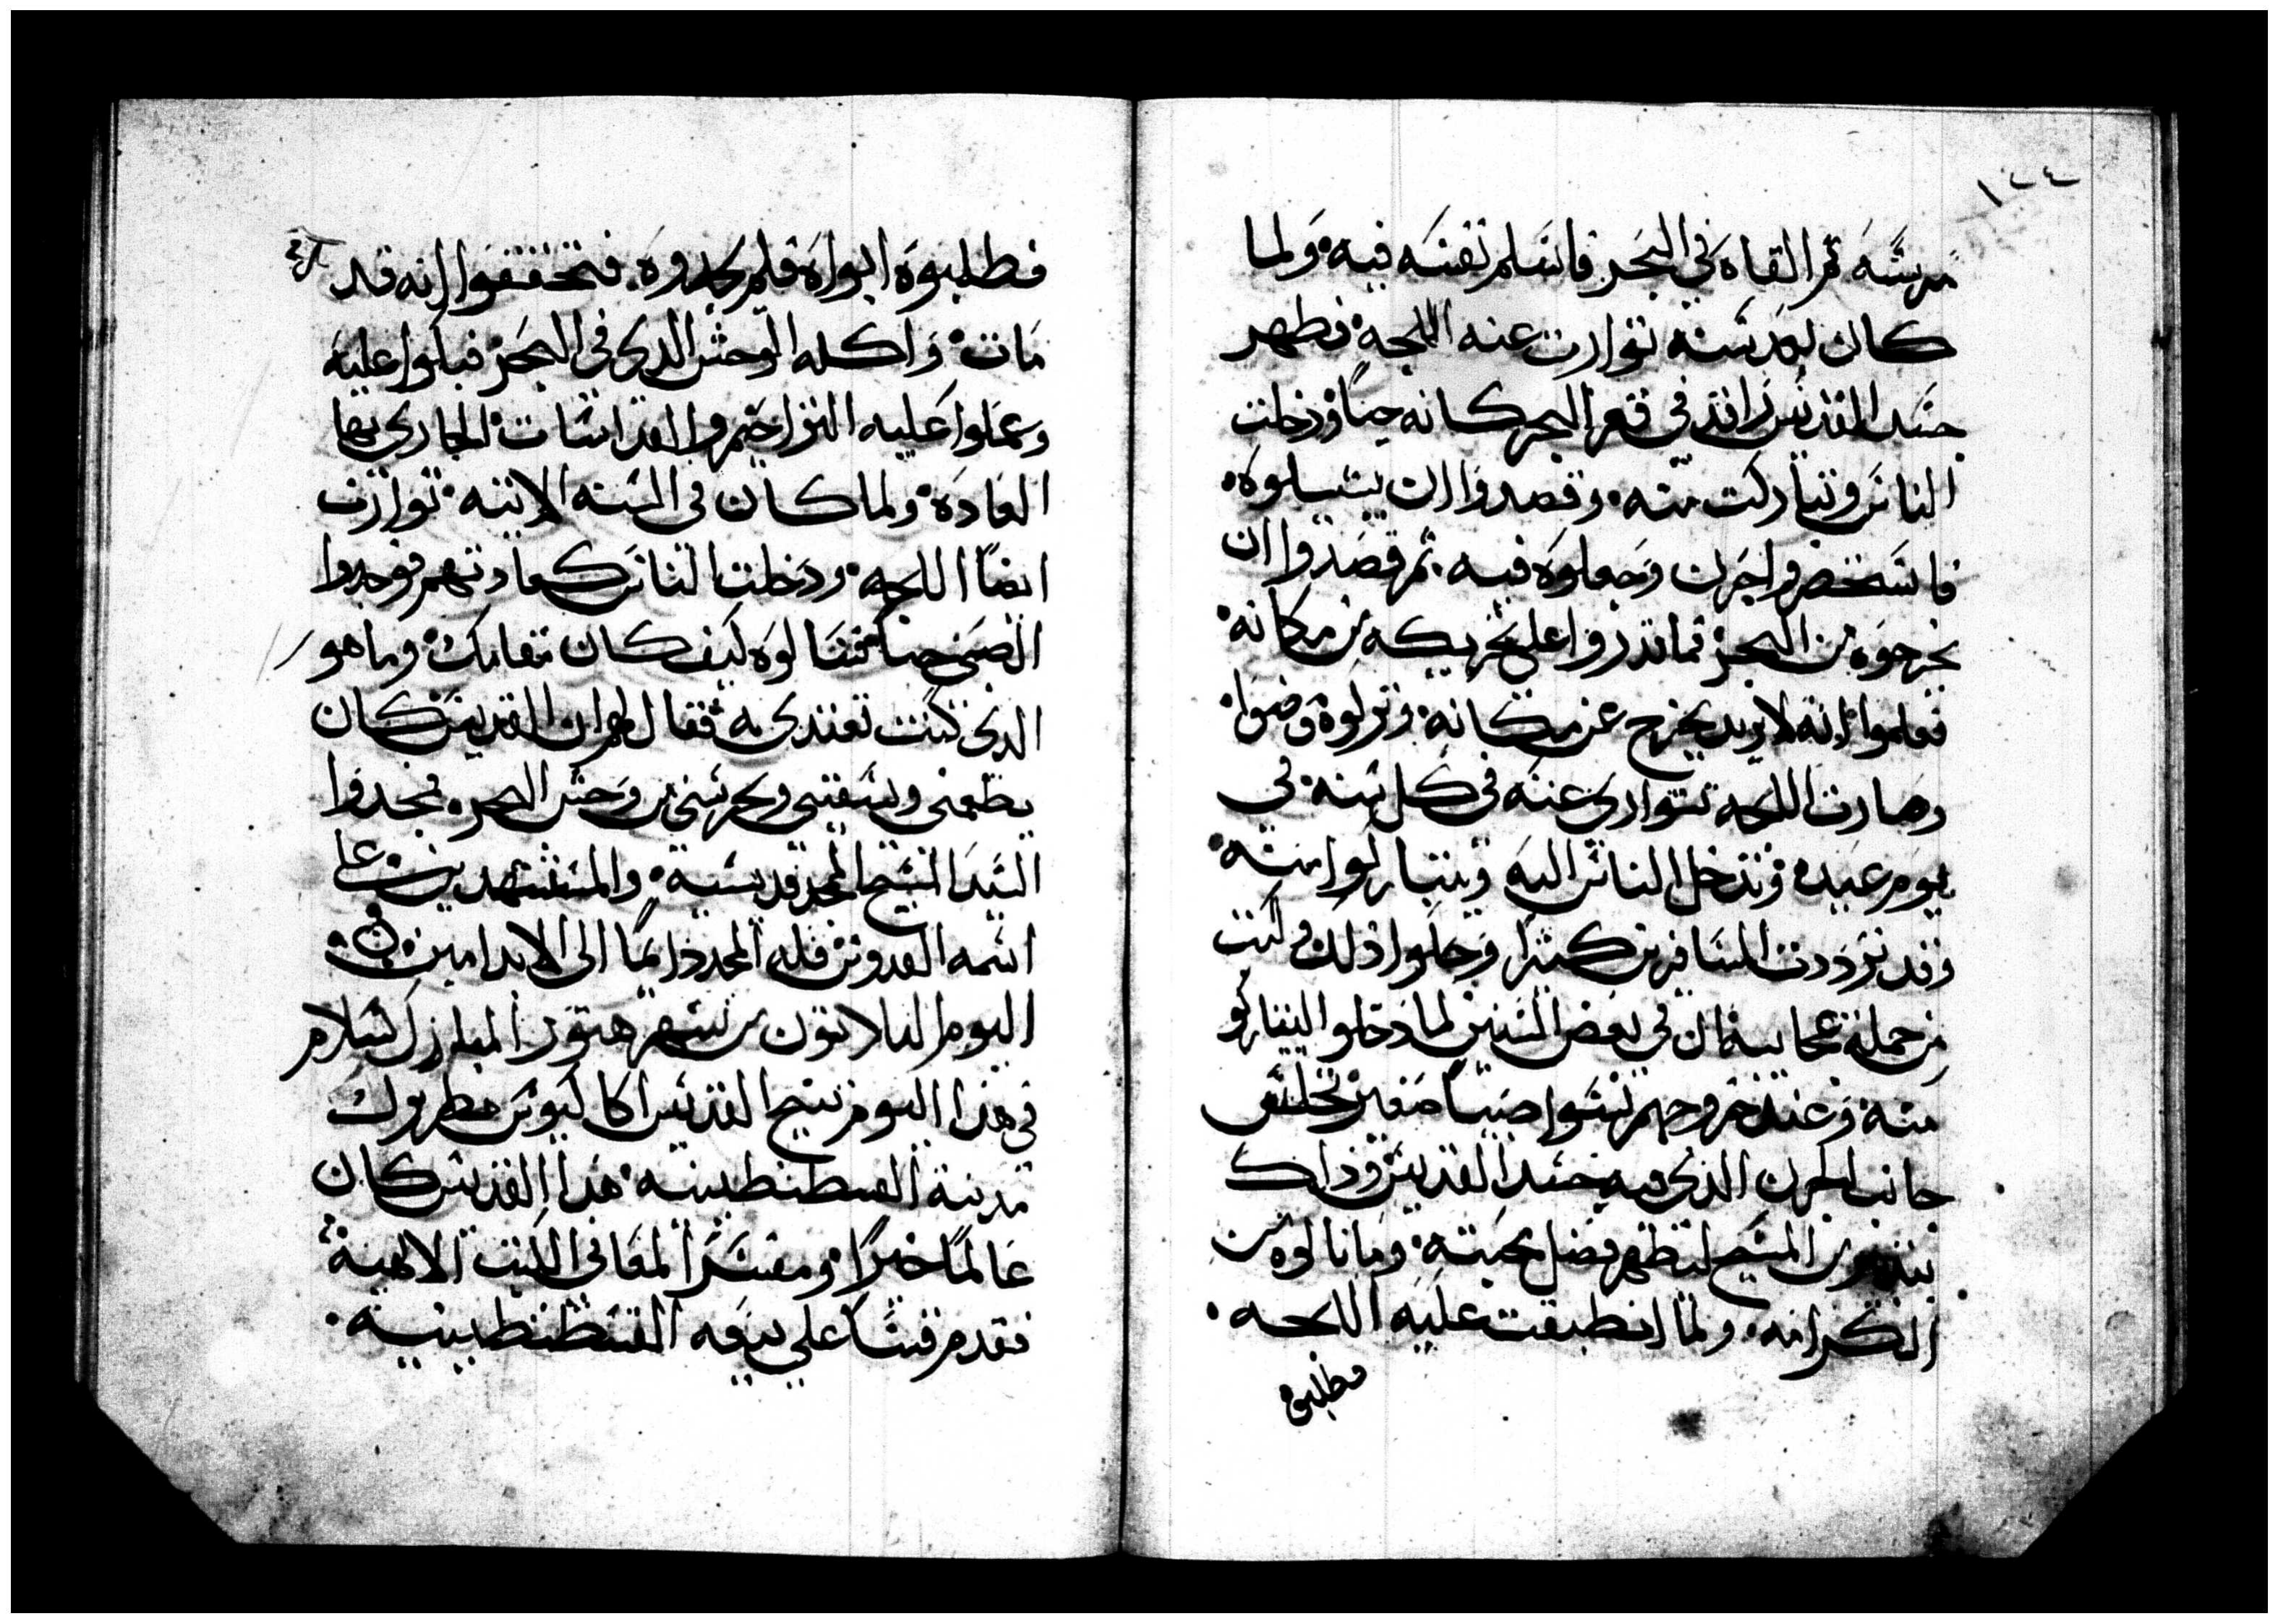 ١٤٤
مرسَه ثم القاه في البحر فاسَلم نفسَه فيه ولما
كان بعد سنه توارت عنه اللجه فظهر
جسَد القديس راقد في قعر البحر كانه حيا ودخلت
الناسَ وتباركت منه وقصدوا ان يشيلوه
فاسَتحضروا جرن وجعلوه فيه ثم قصَدوا ان
يخرجوه من البحر فما قدروا على تحريكه من مكانه
فعلموا انه لا يريد يخرج عن مكانه وتركوه ومضوا
وصارت اللجه تتوارى عنه في كل سنه في
يوم عيده وتدخل الناس اليه ويتباركوا منه
وقد ترددت المسافرين كثيرا وحكوا ذلك وكتب
من جملة عجايبه ان في بعض السنين لما دخلوا اليتباركوا
منه وعند خروجهم نسَوا صبيا صَغير تخلف
جانب الجرن الذي فيه جسَد القديس وذاك
بتدبير من المسَيح ليظهر فضل محبته وما نالوه من
الكرامه ولما انطبقت عليه اللجه
فطلبوه
فطلبوة ابواه فلم يجدوه فتحققوا انه قد
مات واكله الوحش الدي في البحر فبكوا عليه
وعملوا عليه التراحيم والقداسات الجاري بها
العاده ولما كان في السنه الاتيه توارت
ايضا اللجه ودخلت الناس كعادتهم فوجدوا
الصَبي حيا فسَالوه كيف كان مقامك وما هو
الدي كنت تغتدي به فقال لهم ان القديس كان
يطعمني ويسَقيني ويحرسَني من وحش البحر فمجدوا
السَيد المسَيح الممجد قديسَيه والمستشهدين على
اسَمه القدوس فله المجد دايما الى الابد امين
اليوم التلاتون من شهر هتور المبارك بسَلام
في هذا اليوم تنيح القديس اكاكيوس بطريرك
مدينة القسطنطينيه هذا القديس كان
عَالما خبيرا ومفسَرا لمعاني الكتب الالهيه
فقدم قسَا على بيعه القسَطنطينيه